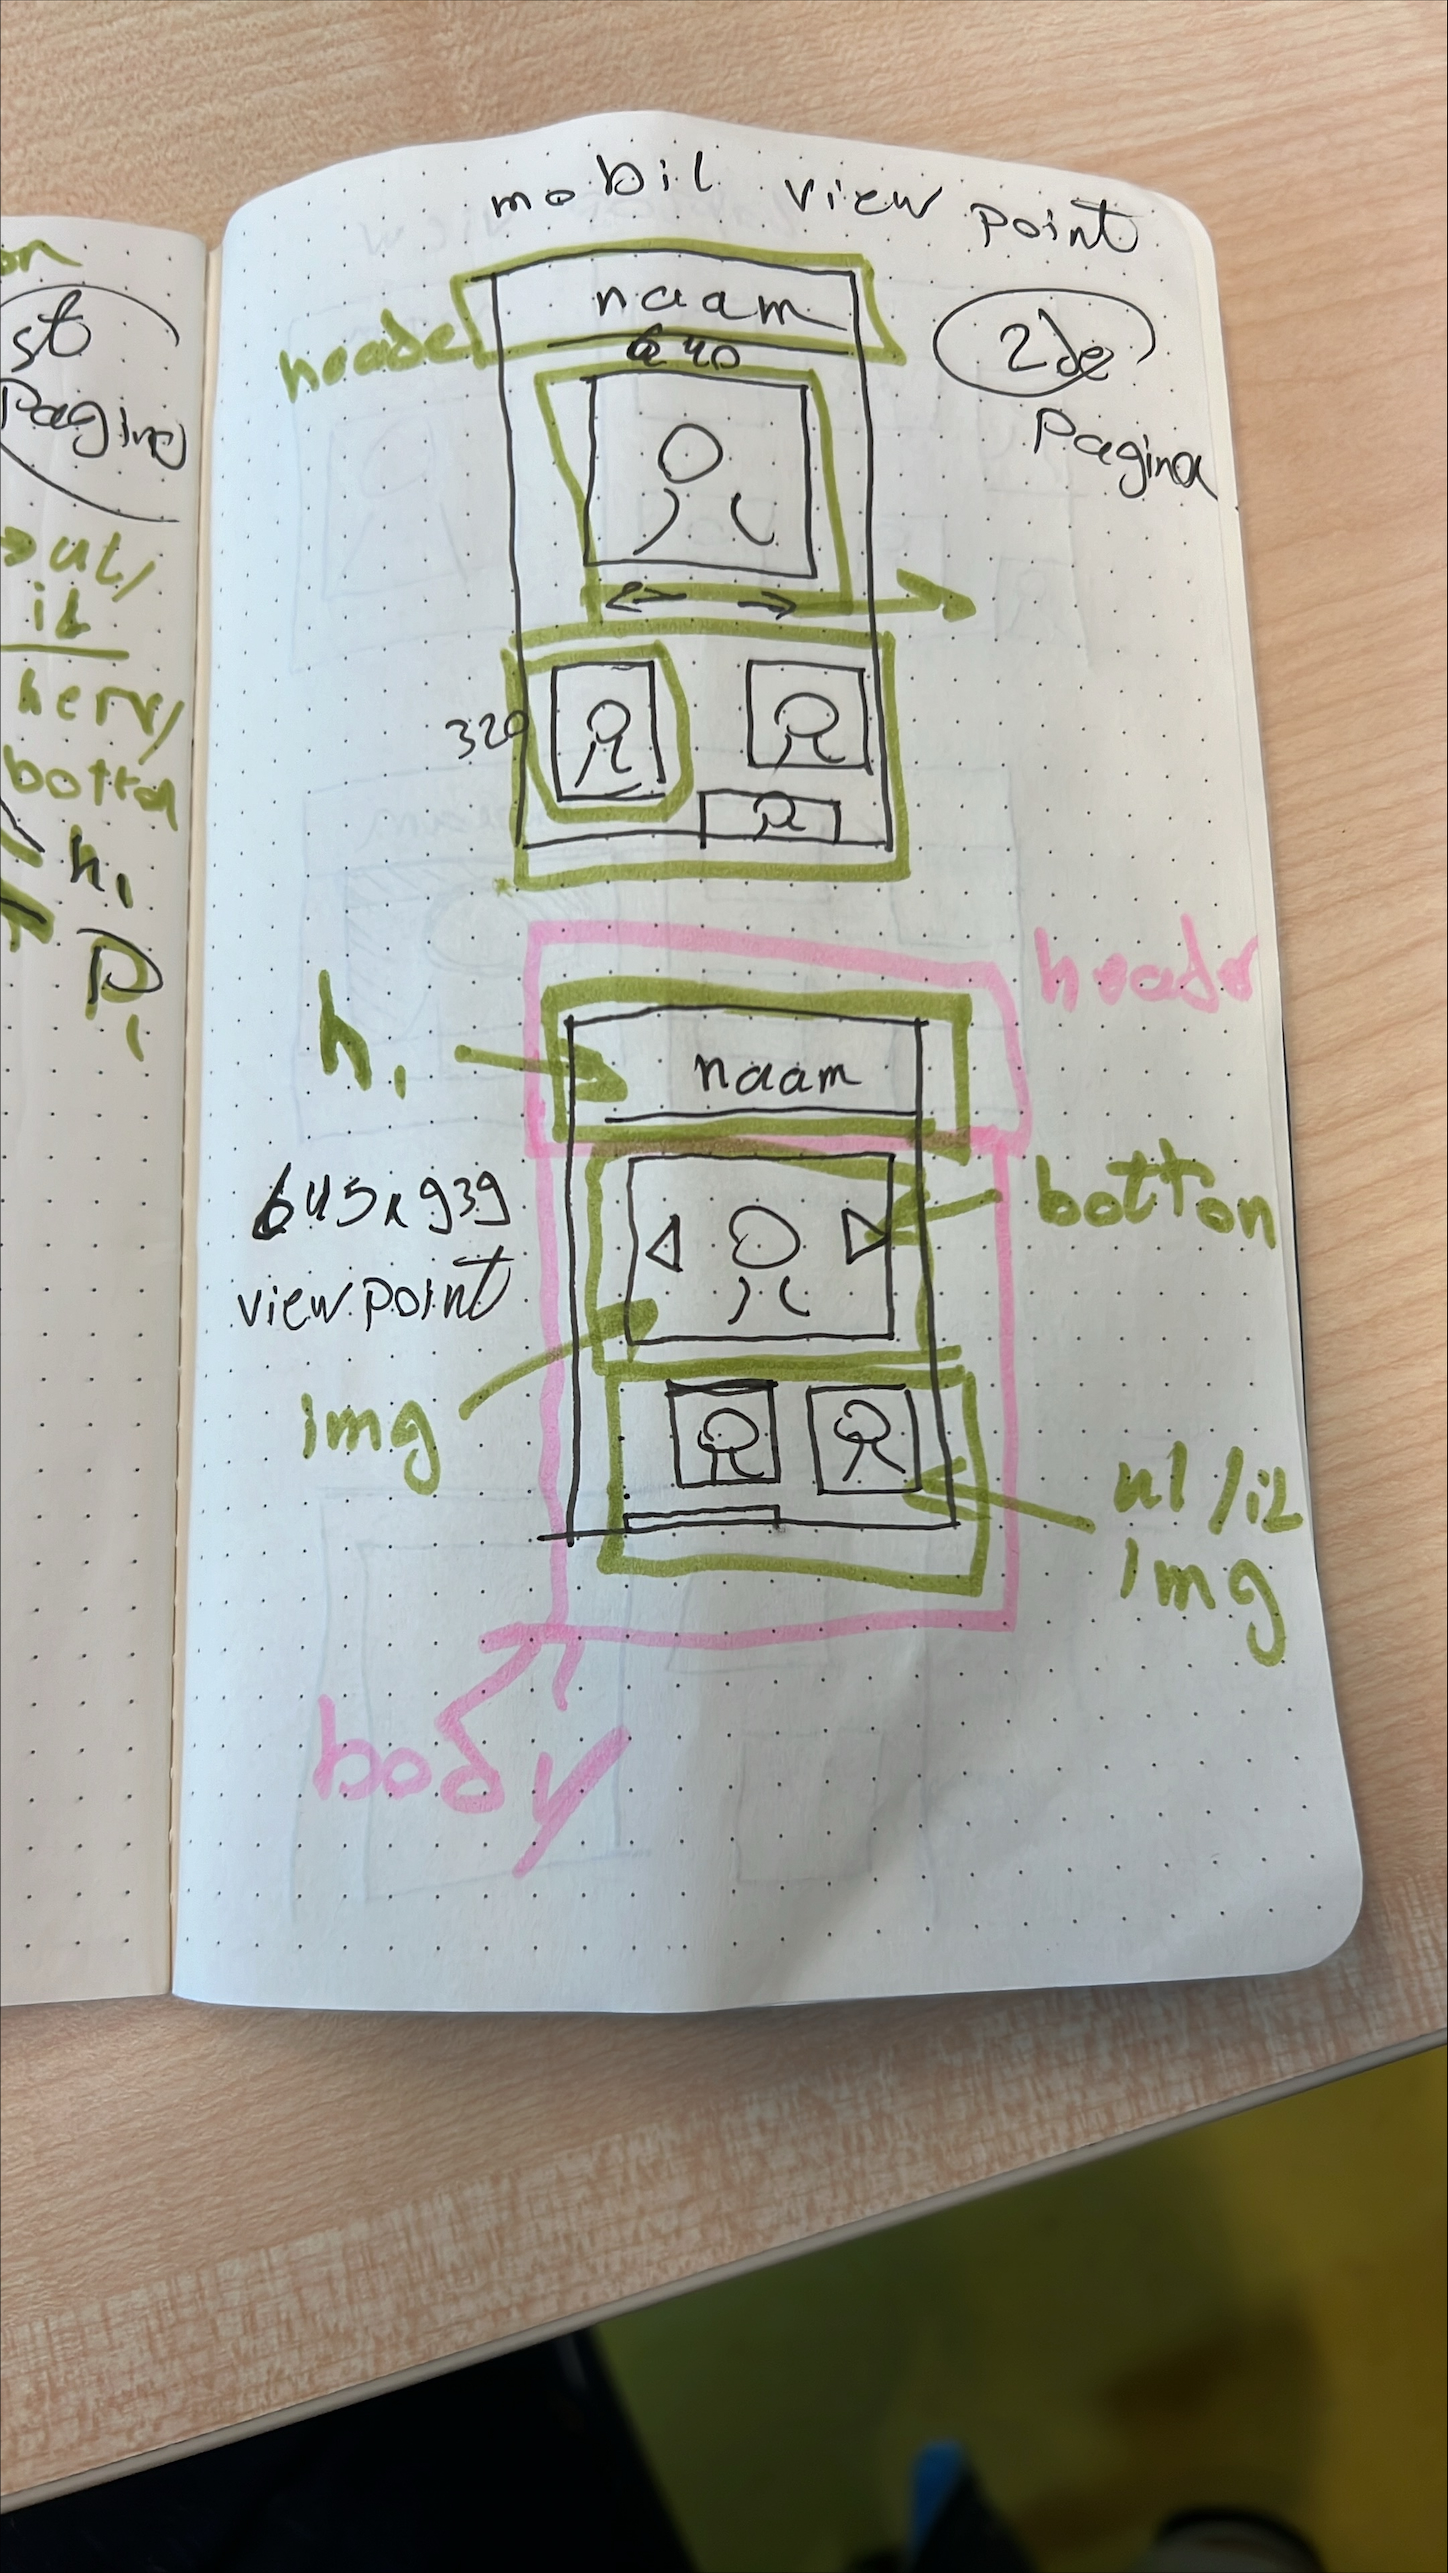 on
st
Pagina
ul/
il
herv/
botton
h1
P
mobil view point
naam
header
640
2de
Pagina
320
header
h1
naam
645x939
viewpoint
botton
img
ul/il
img
body